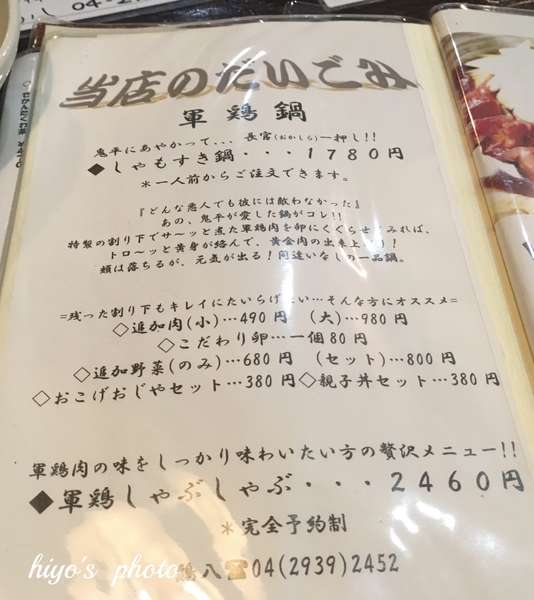 当店のだいごみ
軍鶏鍋
鬼平にあやかって... 長官(おかしら)一押し!!
◆しゃもすき鍋・・・1780円
*一人前からご注文できます。
『どんな悪人でも彼には敵わなかった』
あの、鬼平が愛した鍋がコレ!!
特製の割り下でサ〜ッと煮た軍鶏肉を卵にくぐらせ
みれば、
トロ〜ッと黄身が絡んで、黄金肉の出来上
り!
頬は落ちるが、元気が出る!間違いなしの一品鍋。
=残った割り下もキレイにたいらげ
い…そんな方にオススメ=
◇追加肉(小)…490円 (大)…980円
◇こだわり卵…一個80円
◇追加野菜(のみ)…680円 (セット)…800円
◇おこげおじやセット…380円 ◇親子丼セット…380円
軍鶏肉の味をしっかり味わいたい方の贅沢メニュー!!
◆軍鶏しゃぶしゃぶ・・・2460円
*完全予約制
八☎04(2939)2452
hiyo's photo